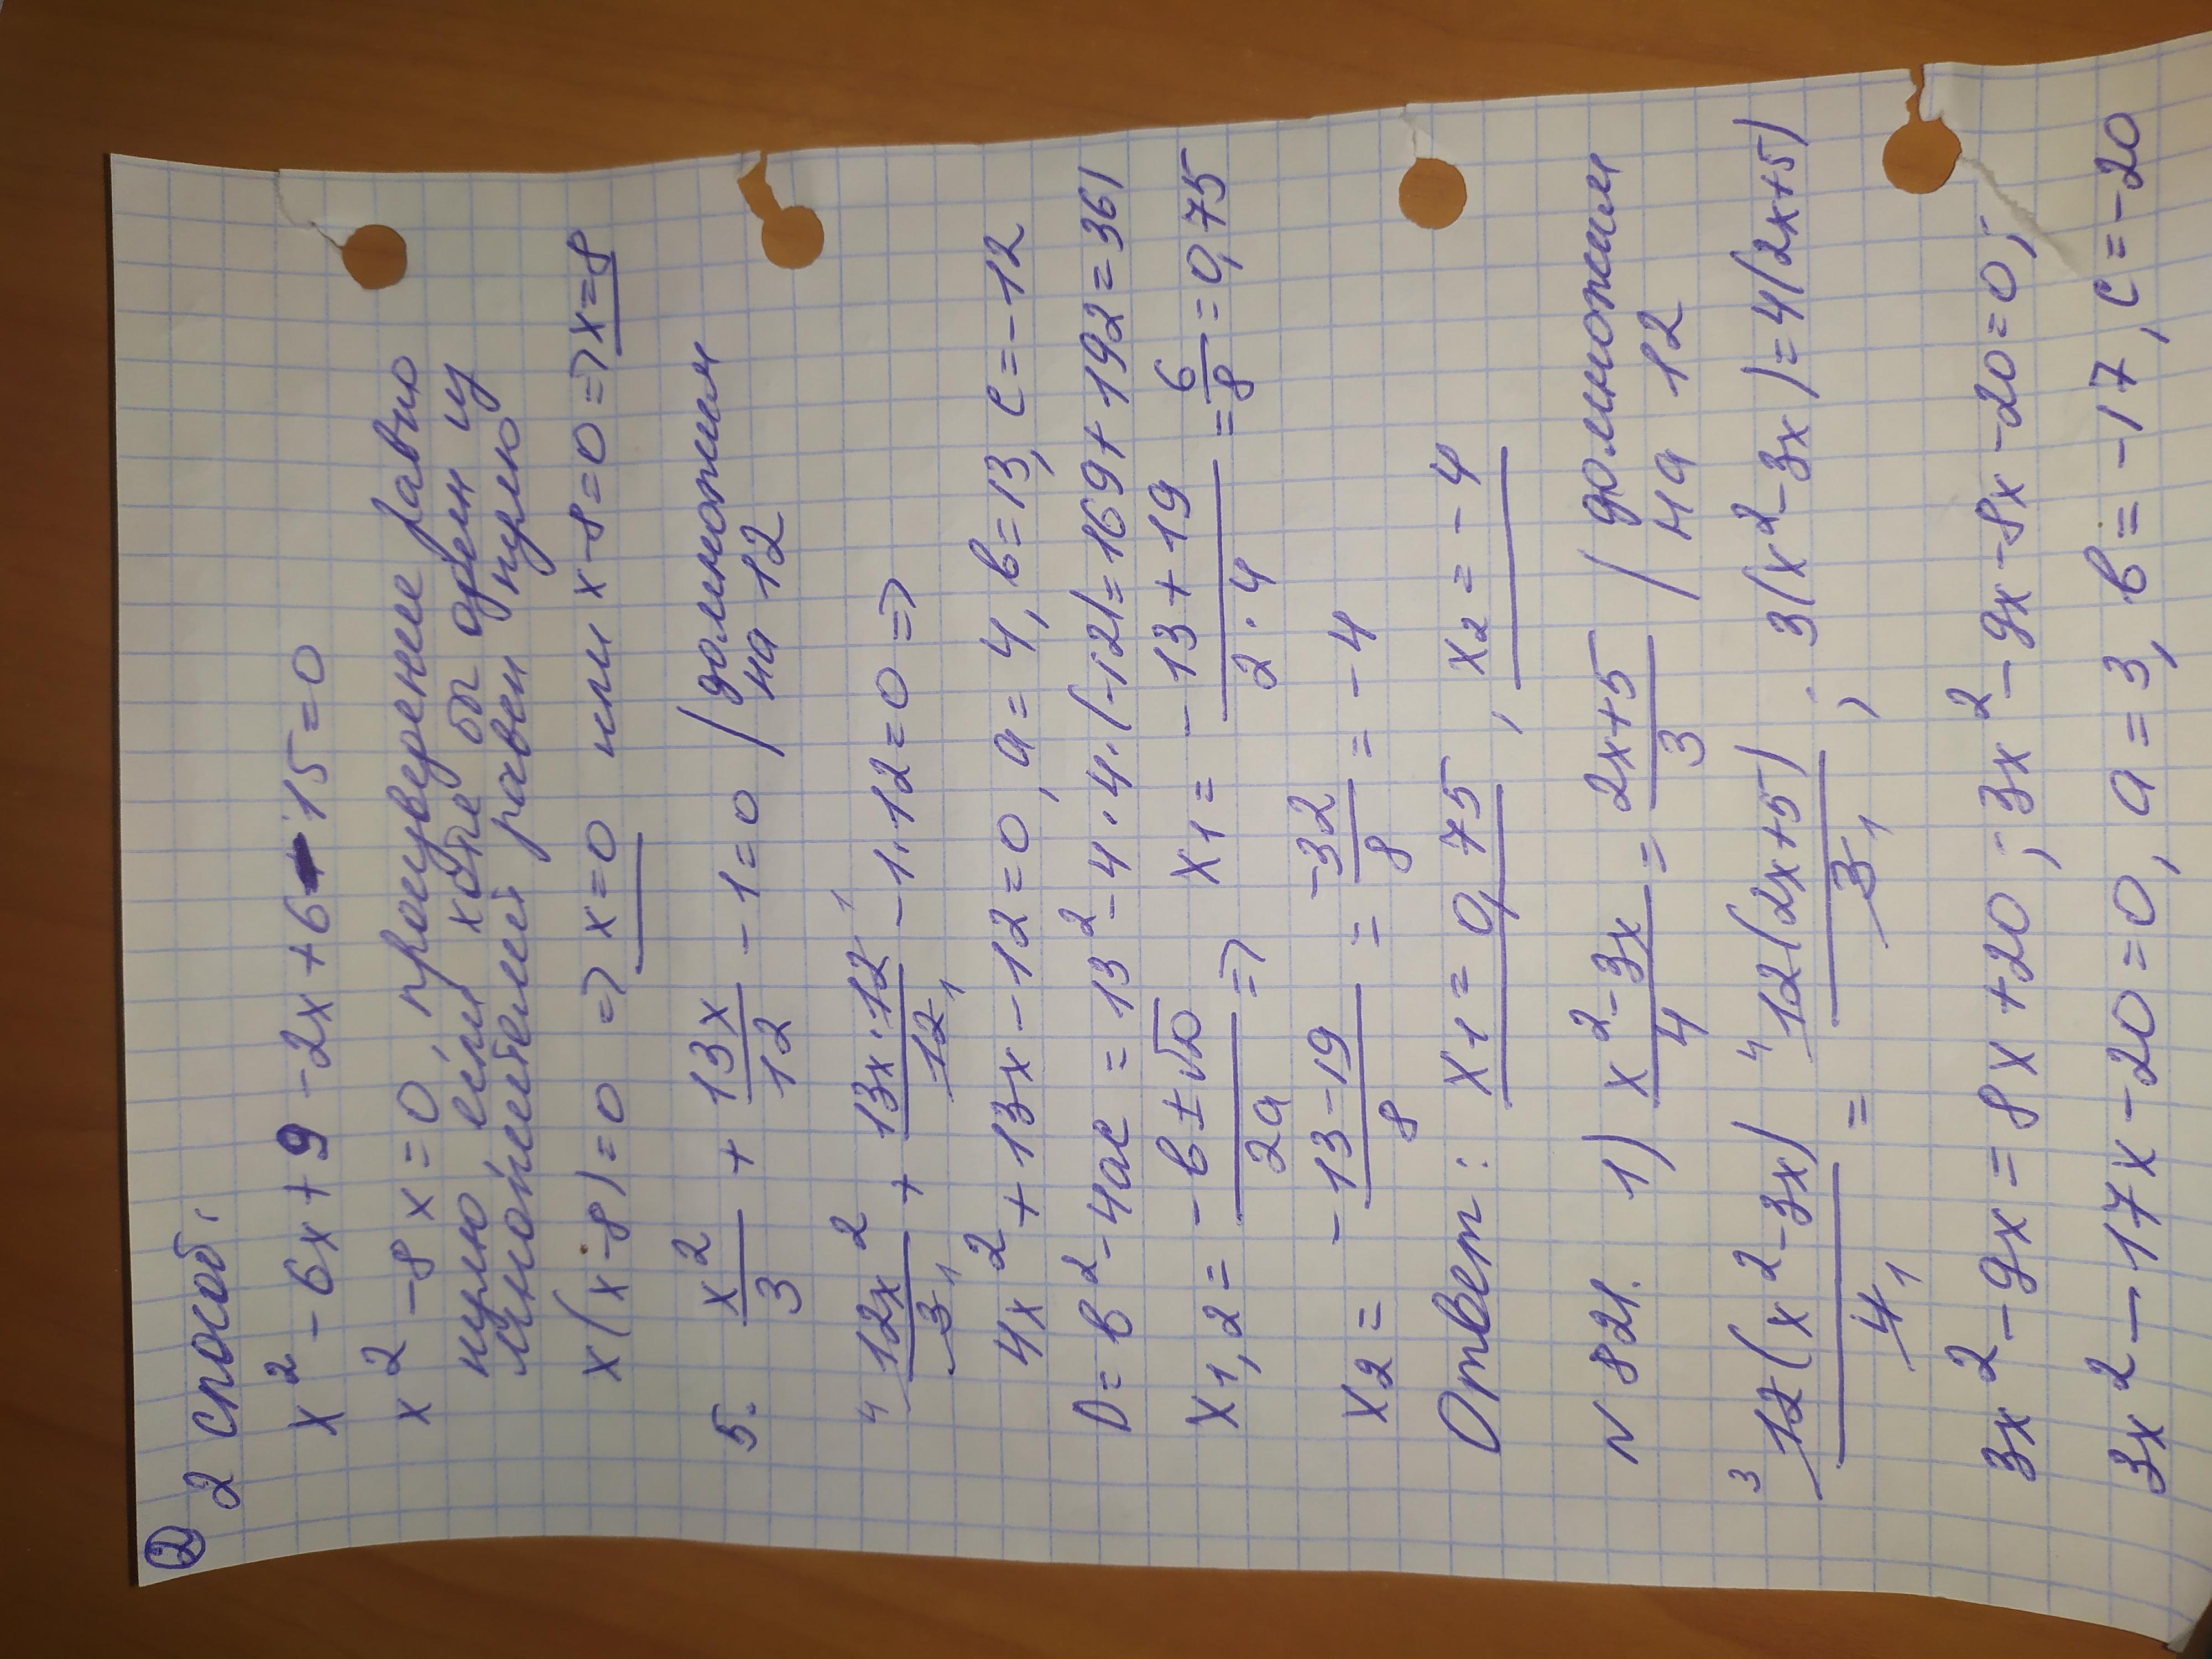 ②
2 способ.
x² - 6x + 9 - 2x + 6 - 15 = 0
x² - 8x = 0, произведение равно
нулю, если хотя бы один из
множителей равен нулю
x(x-8) = 0 => x = 0 или x - 8 = 0 => x = 8
5. x²/3 + 13x/12 - 1 = 0 / домножим
на 12
⁴12x²/3₁ + 13x·12¹/12₁ - 1·12 = 0 =>
4x² + 13x - 12 = 0, a = 4, b = 13, c = -12
D = b² - 4ac = 13² - 4·4·(-12) = 169 + 192 = 361
x₁,₂ = -b ± √D/2a => x₁ = -13 + 19/2·4 = 6/8 = 0,75
x₂ = -13 - 19/8 = -32/8 = -4
Ответ: x₁ = 0,75, x₂ = -4
N 821. 1) x² - 3x/4 = 2x + 5/3 / домножим
на 12
³12(x² - 3x)/4₁ = ⁴12(2x + 5)/3₁, 3(x² - 3x) = 4(2x + 5)
3x² - 9x = 8x + 20; 3x² - 9x - 8x - 20 = 0;
3x² - 17x - 20 = 0, a = 3, b = -17, c = -20